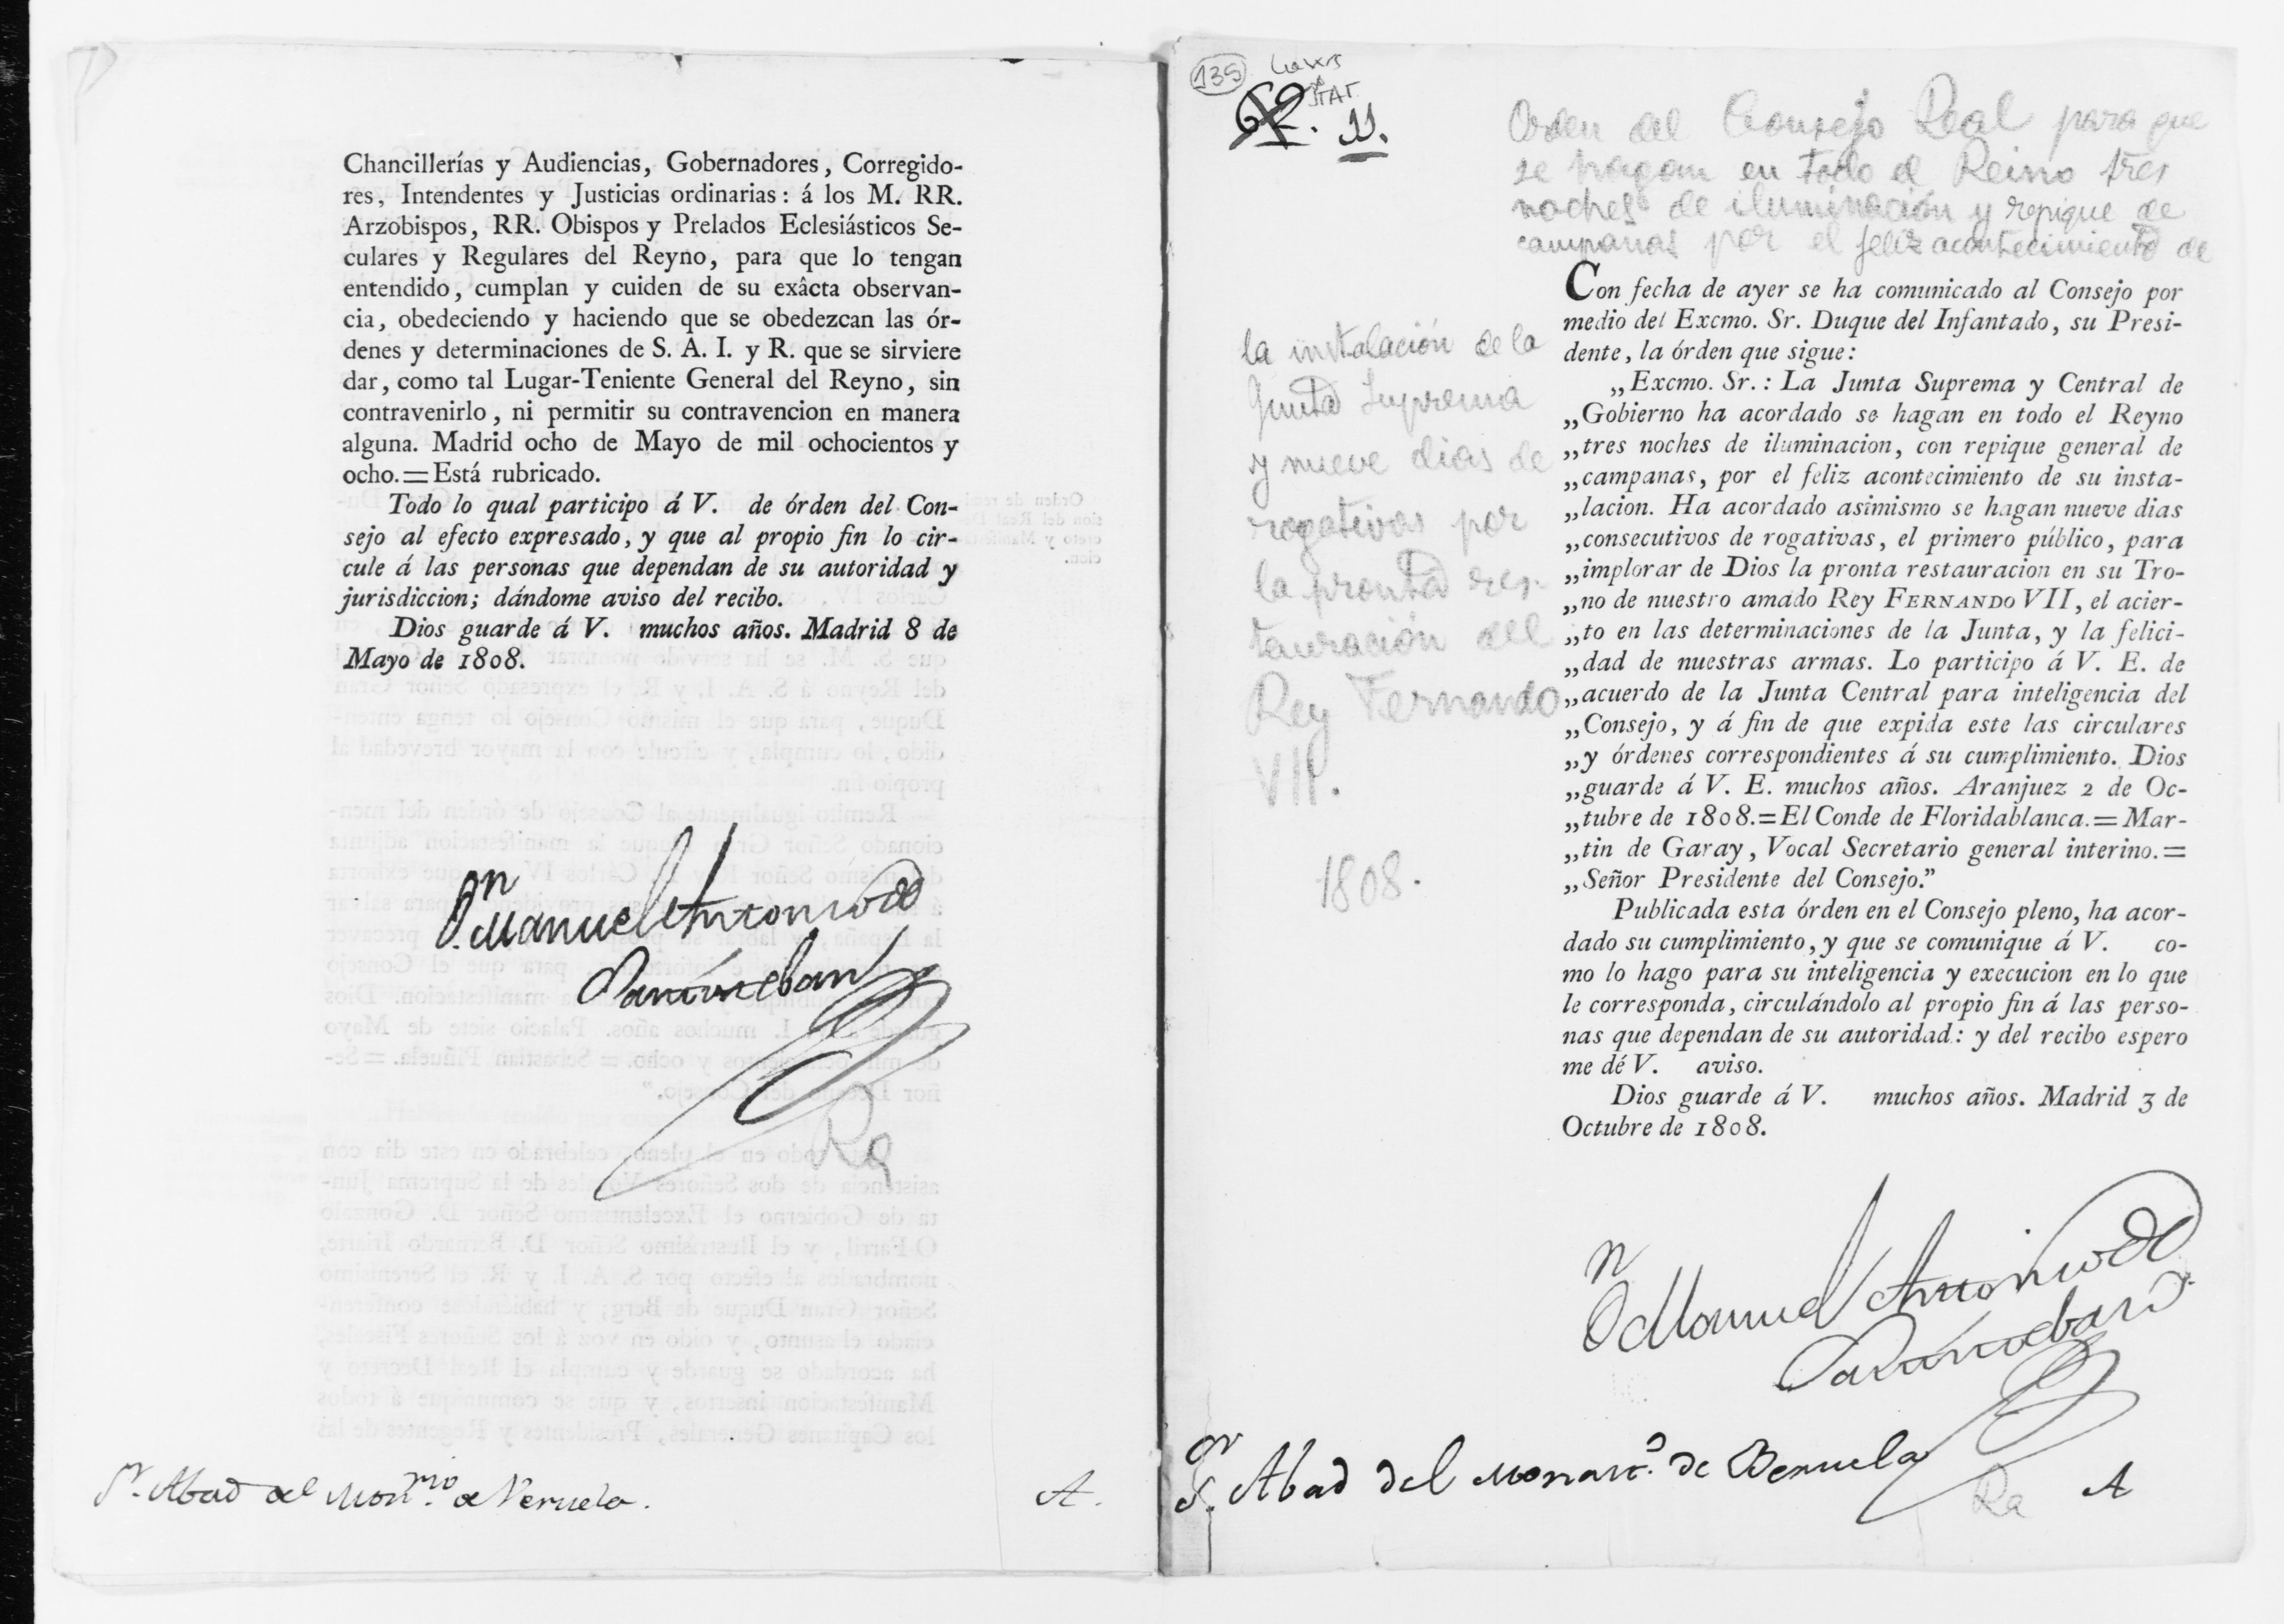 Chancillerías y Audiencias, Gobernadores, Corregido-
res, Intendentes y Justicias ordinarias: á los M. RR.
Arzobispos, RR. Obispos y Prelados Eclesiásticos Se-
culares y Regulares del Reyno, para que lo tengan
entendido, cumplan y cuiden de su exâcta observan-
cia, obedeciendo y haciendo que se obedezcan las ór-
denes y determinaciones de S. A. I. y R. que se sirviere
dar, como tal Lugar-Teniente General del Reyno, sin
contravenirlo, ni permitir su contravencion en manera
alguna. Madrid ocho de Mayo de mil ochocientos y
ocho.=Está rubricado.
Todo lo qual participo á V. de órden del Con-
sejo al efecto expresado, y que al propio fin lo cir-
cule á las personas que dependan de su autoridad y
jurisdiccion; dándome aviso del recibo.
Dios guarde á V. muchos años. Madrid 8 de
Mayo de 1808.
Manuel Antonio de
Santisteban
Ra
Sr. Abad del Monrio. de Veruela.
A.
135
62. 11.
Orden del Consejo Real para que
se hagan en todo el Reino tres
noches de iluminación y repique de
campañas por el feliz acontecimiento de
la instalación de la
Junta Suprema
y nueve dias de
rogativas por
la pronta res-
tauración del
Rey Fernando
VII.
1808.
Con fecha de ayer se ha comunicado al Consejo por
medio del Excmo. Sr. Duque del Infantado, su Presi-
dente, la órden que sigue:
„Excmo. Sr.: La Junta Suprema y Central de
„Gobierno ha acordado se hagan en todo el Reyno
„tres noches de iluminacion, con repique general de
„campanas, por el feliz acontecimiento de su insta-
„lacion. Ha acordado asimismo se hagan nueve dias
„consecutivos de rogativas, el primero público, para
„implorar de Dios la pronta restauracion en su Tro-
„no de nuestro amado Rey FERNANDO VII, el acier-
„to en las determinaciones de la Junta, y la felici-
„dad de nuestras armas. Lo participo á V. E. de
„acuerdo de la Junta Central para inteligencia del
„Consejo, y á fin de que expida este las circulares
„y órdenes correspondientes á su cumplimiento. Dios
„guarde á V. E. muchos años. Aranjuez 2 de Oc-
„tubre de 1808.=El Conde de Floridablanca.=Mar-
„tin de Garay, Vocal Secretario general interino.=
„Señor Presidente del Consejo.”
Publicada esta órden en el Consejo pleno, ha acor-
dado su cumplimiento, y que se comunique á V. co-
mo lo hago para su inteligencia y execucion en lo que
le corresponda, circulándolo al propio fin á las perso-
nas que dependan de su autoridad: y del recibo espero
me dé V. aviso.
Dios guarde á V. muchos años. Madrid 3 de
Octubre de 1808.
Manuel Antonio de
Santisteban
Sr. Abad del Monasto. de Beruela
Ra
A